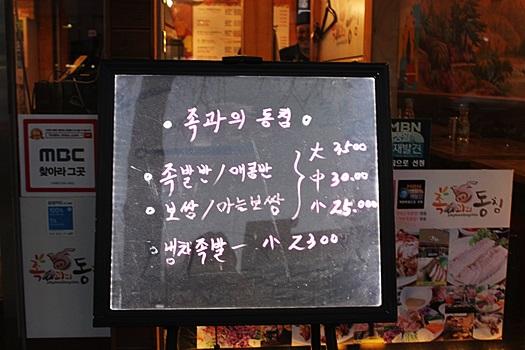 족과의 동침
족발반/매콤반 大 3500
보쌈/마늘보쌈 中 30.00
小 25.000
냉채족발 - 小 2300
MBC
찾아라 그곳
MBN
재발견
으로 선정
족과의 동침
족과의 동